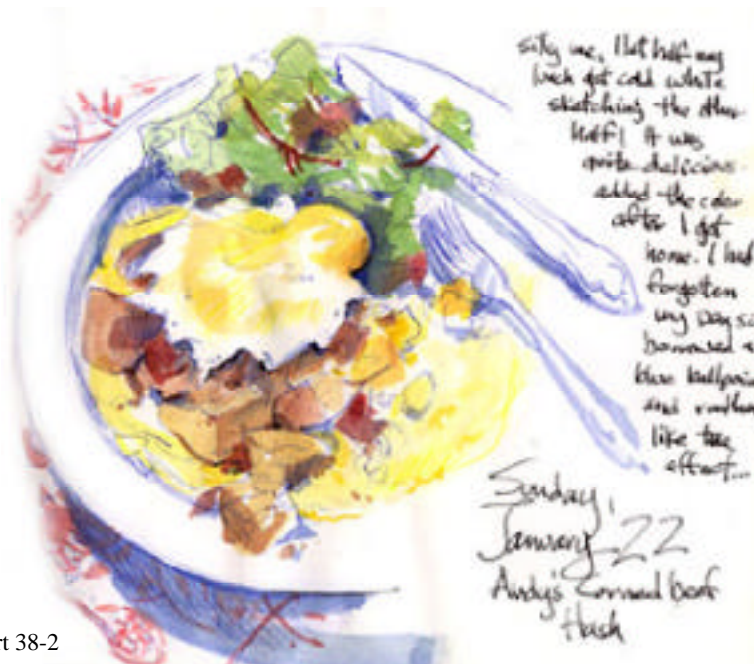 silly me, I let half my
lunch get cold while
sketching the other
half! It was
quite delicious
added the color
after I got
home. I had
forgotten
my pay so
borrowed a
blue ballpoi
and rather
like the
effect...
Sunday,
January 22
Andy's Corned beef
Hash
rt 38-2